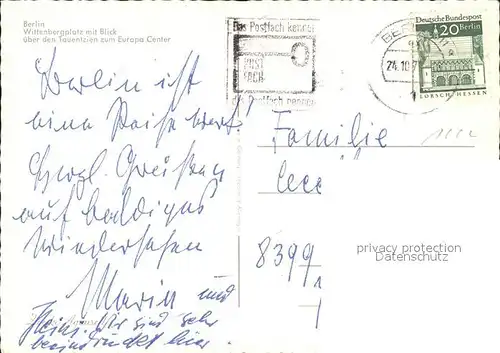 Berlin
Wittenbergplatz mit Blick
über den Tauentzien zum Europa Center
Das Postfach kennen
POST
FACH
das Postfach nennen
24.10.7
Deutsche Bundespost
20 Berlin
LORSCH HESSEN
Berlin ist
eine Reise wert!
Herzl. Grüße
auf baldiges
Wiedersehen
Maria und
Heinz. Wir sind sehr
beeindruckt hier.
Familie
8399
privacy protection
Datenschutz